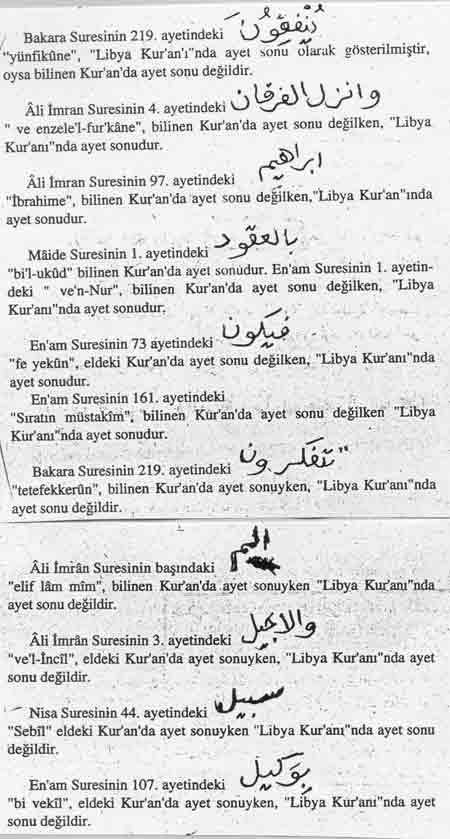 Bakara Suresinin 219. ayetindeki يُنْفِقُونَ
"yünfikûne", "Libya Kur'an'ı"nda ayet sonu olarak gösterilmiştir,
oysa bilinen Kur'an'da ayet sonu değildir.
Âli İmran Suresinin 4. ayetindeki وانزل الفرقان
" ve enzele'l-fur'kâne", bilinen Kur'an'da ayet sonu değilken, "Libya
Kur'anı"nda ayet sonudur.
Âli İmran Suresinin 97. ayetindeki ابراهيم
"İbrahime", bilinen Kur'an'da ayet sonu değilken,"Libya Kur'an"ında
ayet sonudur.
Mâide Suresinin 1. ayetindeki بالعقود
"bi'l-ukûd" bilinen Kur'an'da ayet sonudur. En'am Suresinin 1. ayetin-
deki " ve'n-Nur", bilinen Kur'an'da ayet sonu değilken, "Libya
Kur'anı"nda ayet sonudur.
En'am Suresinin 73 ayetindeki فيكون
"fe yekûn", eldeki Kur'an'da ayet sonu değilken, "Libya Kur'anı"nda
ayet sonudur.
En'am Suresinin 161. ayetindeki
"Sıratın müstakîm", bilinen Kur'an'da ayet sonu değilken "Libya
Kur'anı"nda ayet sonudur.
Bakara Suresinin 219. ayetindeki تتفكرون
"tetefekkerûn", bilinen Kur'an'da ayet sonuyken, "Libya Kur'anı"nda
ayet sonu değildir.
Âli İmrân Suresinin başındaki الم
"elif lâm mîm", bilinen Kur'an'da ayet sonuyken "Libya Kur'anı"nda
ayet sonu değildir.
Âli İmrân Suresinin 3. ayetindeki والانجيل
"ve'l-İncîl", eldeki Kur'an'da ayet sonuyken, "Libya Kur'anı"nda ayet
sonu değildir.
Nisa Suresinin 44. ayetindeki سبيل
"Sebîl" eldeki Kur'an'da ayet sonuyken "Libya Kur'anı"nda ayet sonu
değildir.
En'am Suresinin 107. ayetindeki بوكيل
"bi vekîl", eldeki Kur'an'da ayet sonuyken, "Libya Kur'anı"nda ayet
sonu değildir.